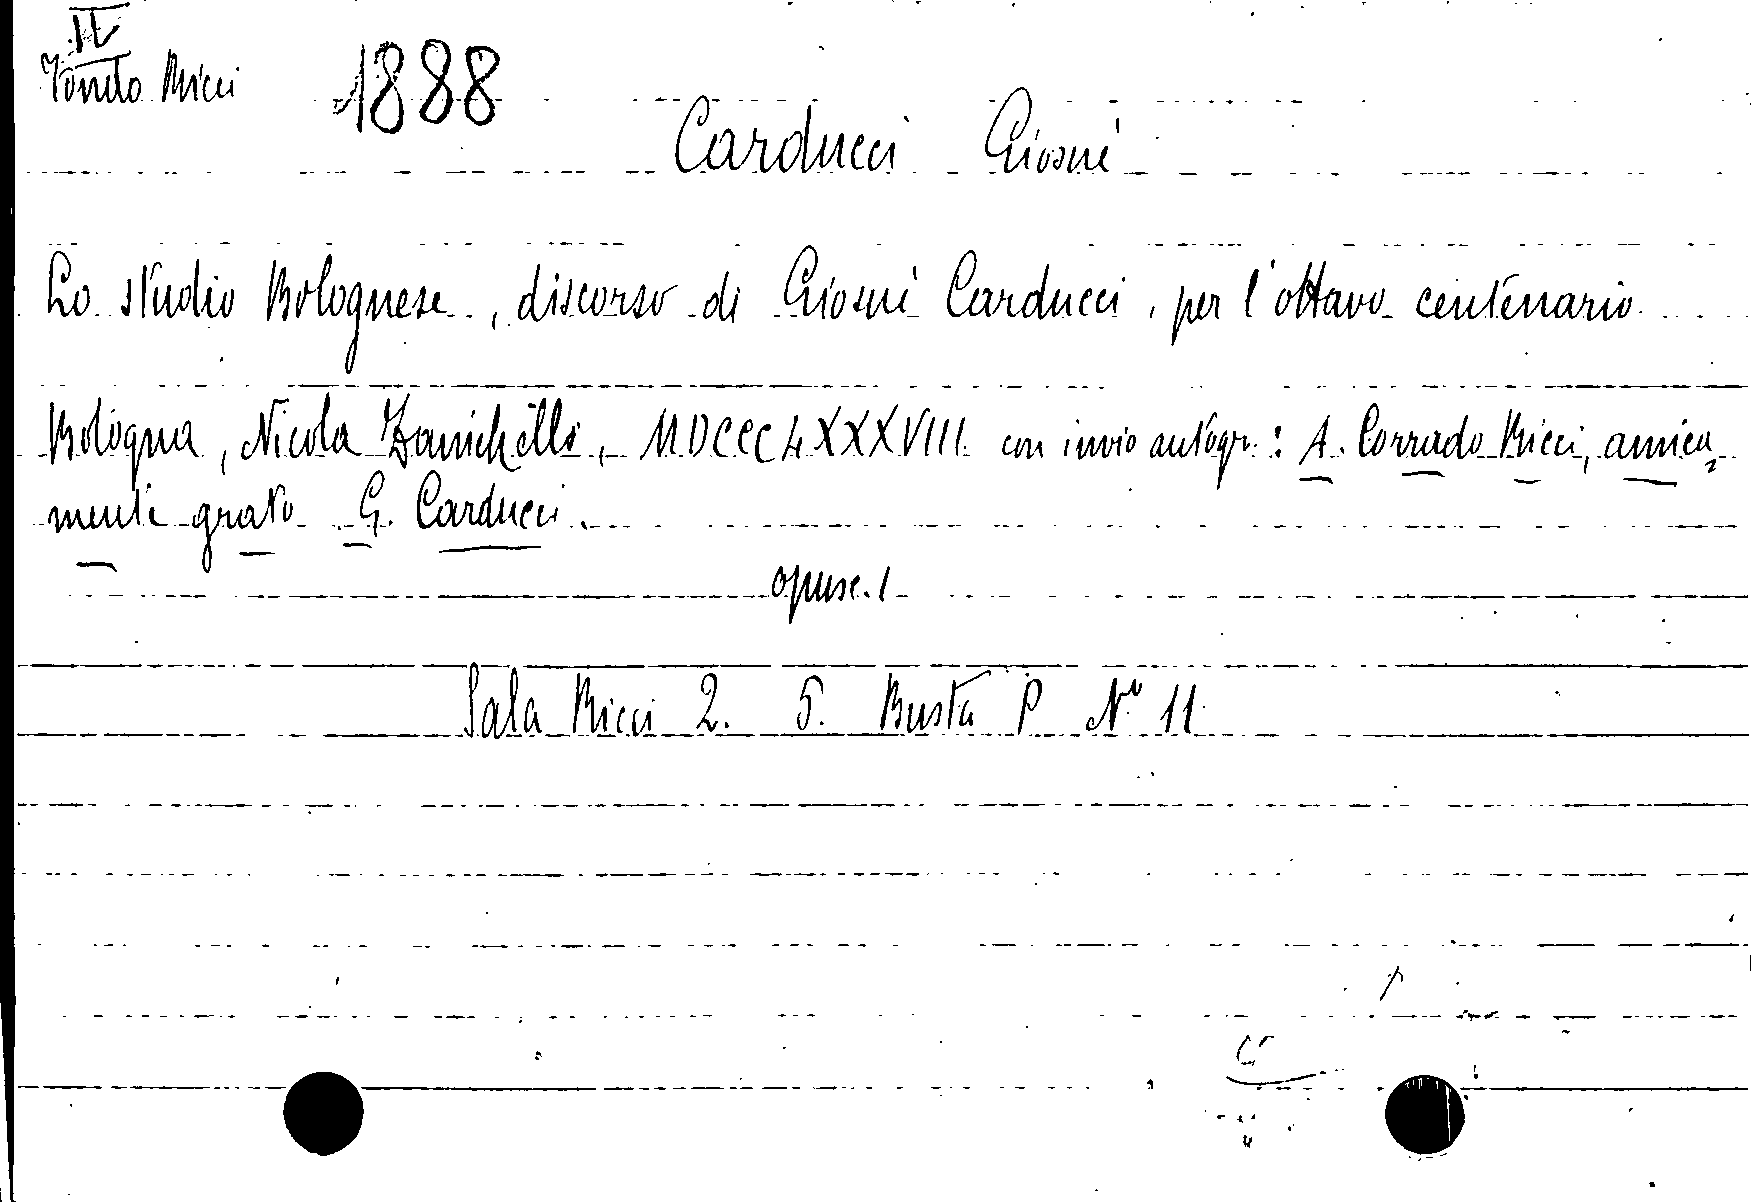 IV
Fondo Ricci 1888
Carducci Giosuè
Lo studio Bolognese, discorso di Giosuè Carducci, per l'ottavo centenario
Bologna, Nicola Zanichelli, MDCCCLXXXVIII con invio autogr.: A. Corrado Ricci, amica=
mente grato G. Carducci.
opusc. 1
Sala Ricci 2. 5. Busta P N° 11